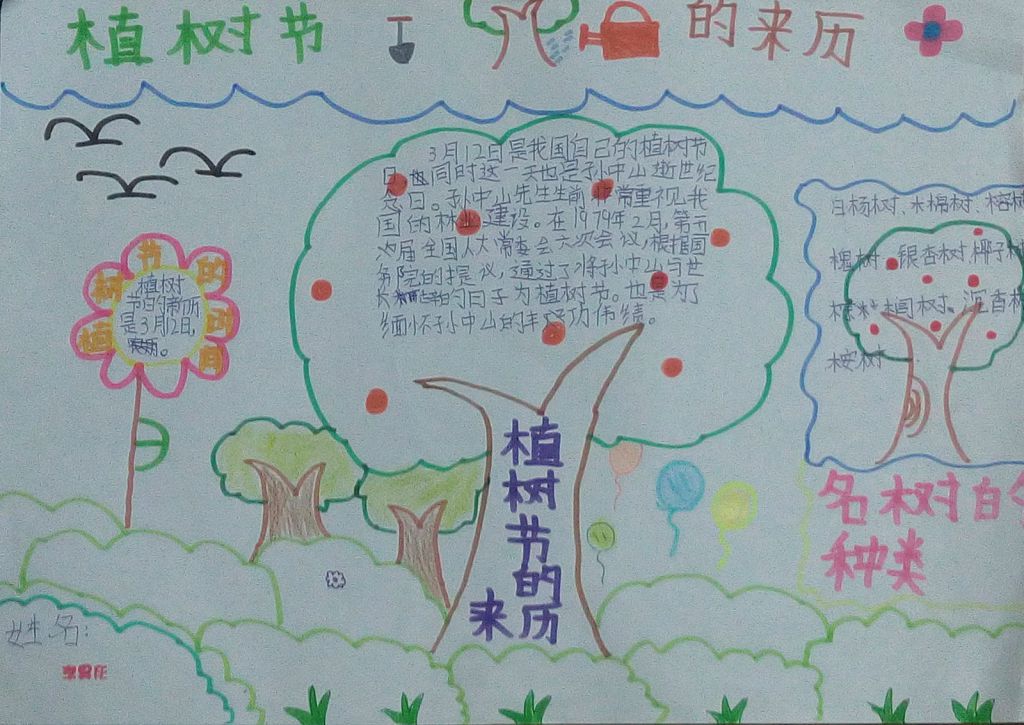 植树节
的来历
3月12日是我国自己的植树节
日,也同时这一天也是孙中山逝世纪
念日。孙中山先生生前非常重视我
国的林业建设。在1979年2月,第五
届全国人大常委会六次会议,根据国
务院的提议,通过了将孙中山与世
长的日子为植树节。也是为了
缅怀孙中山的丰功伟绩。
植树节的时间
植树
节日的
是3月12日,
白杨树、木棉树、榕树
槐树 银杏树 椰子树
树、沉香树
桉树
植树节的来历
名树的
种类
姓名: